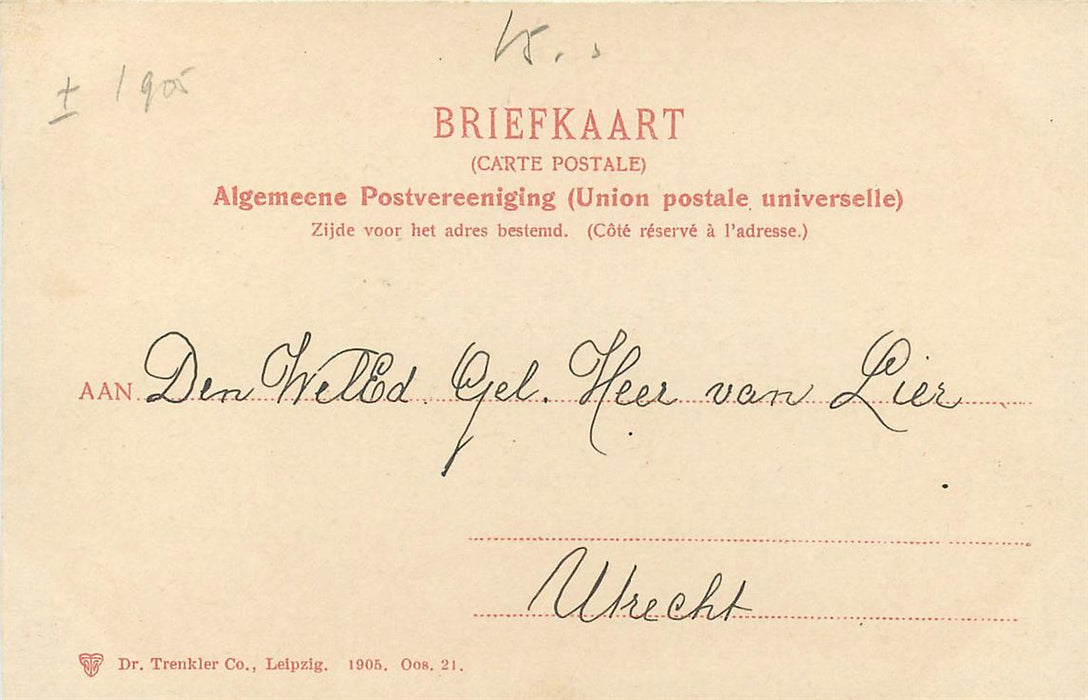 ± 1905
BRIEFKAART
(CARTE POSTALE)
Algemeene Postvereeniging (Union postale universelle)
Zijde voor het adres bestemd. (Côté réservé à l'adresse.)
AAN Den WelEd. Gel. Heer van Lier
Utrecht
Dr. Trenkler Co., Leipzig. 1905. Oos. 21.